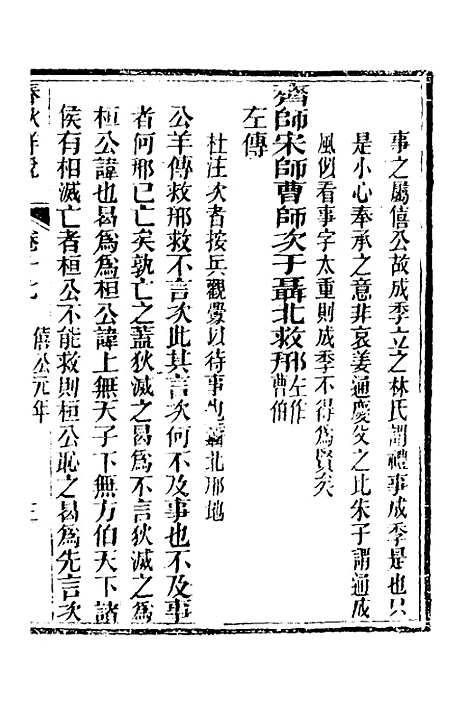 事之屬僖公故成季立之林氏謂禮事成季是也只
是小心奉承之意非哀姜通慶父之比朱子謂通成
風但看事字太重則成季不得爲賢矣
齊師宋師曹師次于聶北救邢左作曹伯
左傳
杜注次者按兵觀釁以待事也聶北邢地
公羊傳救邢救不言次此其言次何不及事也不及事
者何邢已亡矣孰亡之蓋狄滅之曷爲不言狄滅之爲
桓公諱也曷爲爲桓公諱上無天子下無方伯天下諸
侯有相滅亡者桓公不能救則桓公恥之曷爲先言次
春秋詳說 卷十七 僖公元年 三